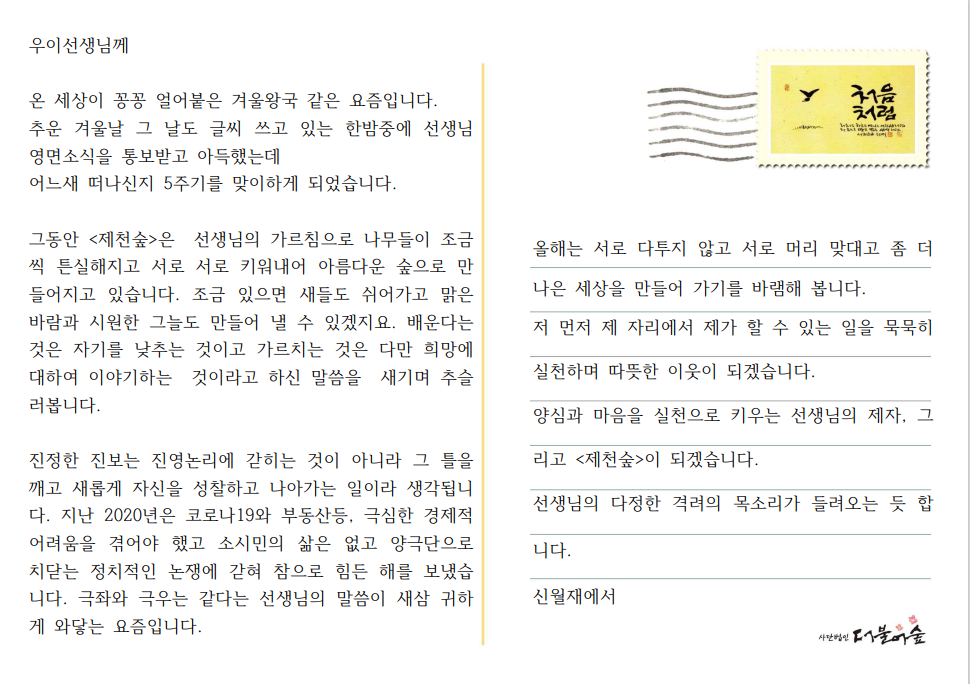 우이선생님께
온 세상이 꽁꽁 얼어붙은 겨울왕국 같은 요즘입니다.
추운 겨울날 그 날도 글씨 쓰고 있는 한밤중에 선생님
영면소식을 통보받고 아득했는데
어느새 떠나신지 5주기를 맞이하게 되었습니다.
그동안 <제천숲>은 선생님의 가르침으로 나무들이 조금
씩 튼실해지고 서로 서로 키워내어 아름다운 숲으로 만
들어지고 있습니다. 조금 있으면 새들도 쉬어가고 맑은
바람과 시원한 그늘도 만들어 낼 수 있겠지요. 배운다는
것은 자기를 낮추는 것이고 가르치는 것은 다만 희망에
대하여 이야기하는 것이라고 하신 말씀을 새기며 추슬
러봅니다.
진정한 진보는 진영논리에 갇히는 것이 아니라 그 틀을
깨고 새롭게 자신을 성찰하고 나아가는 일이라 생각됩니
다. 지난 2020년은 코로나19와 부동산등, 극심한 경제적
어려움을 겪어야 했고 소시민의 삶은 없고 양극단으로
치닫는 정치적인 논쟁에 갇혀 참으로 힘든 해를 보냈습
니다. 극좌와 극우는 같다는 선생님의 말씀이 새삼 귀하
게 와닿는 요즘입니다.
처음
처럼
올해는 서로 다투지 않고 서로 머리 맞대고 좀 더
나은 세상을 만들어 가기를 바램해 봅니다.
저 먼저 제 자리에서 제가 할 수 있는 일을 묵묵히
실천하며 따뜻한 이웃이 되겠습니다.
양심과 마음을 실천으로 키우는 선생님의 제자, 그
리고 <제천숲>이 되겠습니다.
선생님의 다정한 격려의 목소리가 들려오는 듯 합
니다.
신월재에서
사단법인 더불어숲